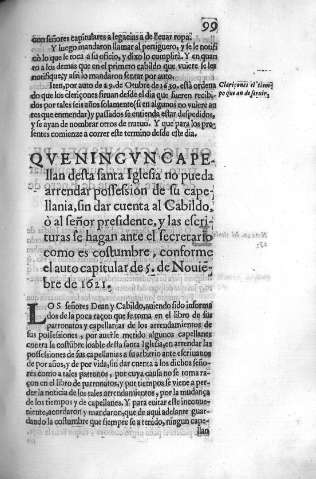 99
con señores capitulares a legacias a de lleuar ropa.
Y luego mandaron llamar al pertiguero, y se le notificó
lo que le toca a su oficio, y dixo lo cumplirà. Y en quanto
a los demas que en el primero cabildo que vuiere se les
notifique, y asi lo mandaron sentar por auto.
Iten, por auto de 29. de Otubre de 1630. està ordenado
que los clerizones siruan desde el dia que fueren recibidos
por tales seis años solamente (si en algunos no vuiere autores
que enmendar) y passados se entienda estar despedidos,
y se ayan de nombrar otros de nueuo. Y que para los presentes
comience a correr este termino desde este dia.
Clerizones el tiempo
que an de seruir.
QVE NINGVN CAPEllan
desta santa Iglesia no pueda
arrendar possession de su capellania,
sin dar cuenta al Cabildo,
ò al señor presidente, y las escrituras
se hagan ante el secretario
como es costumbre, conforme
el auto capitular de 5. de Nouiembre
de 1621.
LOS señores Dean y Cabildo, auiendo sido informados
de la poca raçon que se toma en el libro de sus
patronatos y capellanias de los arrendamientos de
sus possessiones, por auerse metido algunos capellanes
contra la costumbre loable desta santa Iglesia, en arrendar las
possessiones de sus capellanias a su aluedrio ante escriuanos
de por años, y de por vida, sin dar cuenta a los dichos señores
como a tales patronos, por cuya causa no se toma raçon
en el libro de patronatos, y por tiempos se viene a perder
la noticia de los tales arrendamientos, por la mudança
de los tiempos y de capellanes. Y para euitar este inconueniente,
acordaron y mandaron, que de aqui adelante guardando
la costumbre que siempre se a tenido, ningun capellan